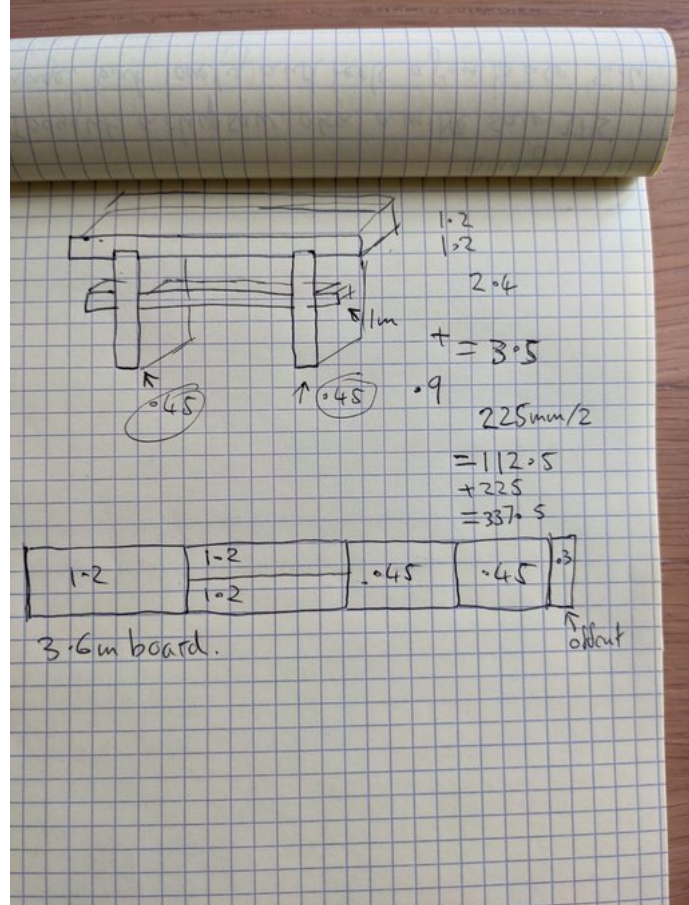 1.2
1.2
2.4
1m
+ = 3.5
.45
.45
.9
225mm/2
=112.5
+225
=337.5
1.2
1.2
1.2
.45
.45
.3
offcut
3.6m board.